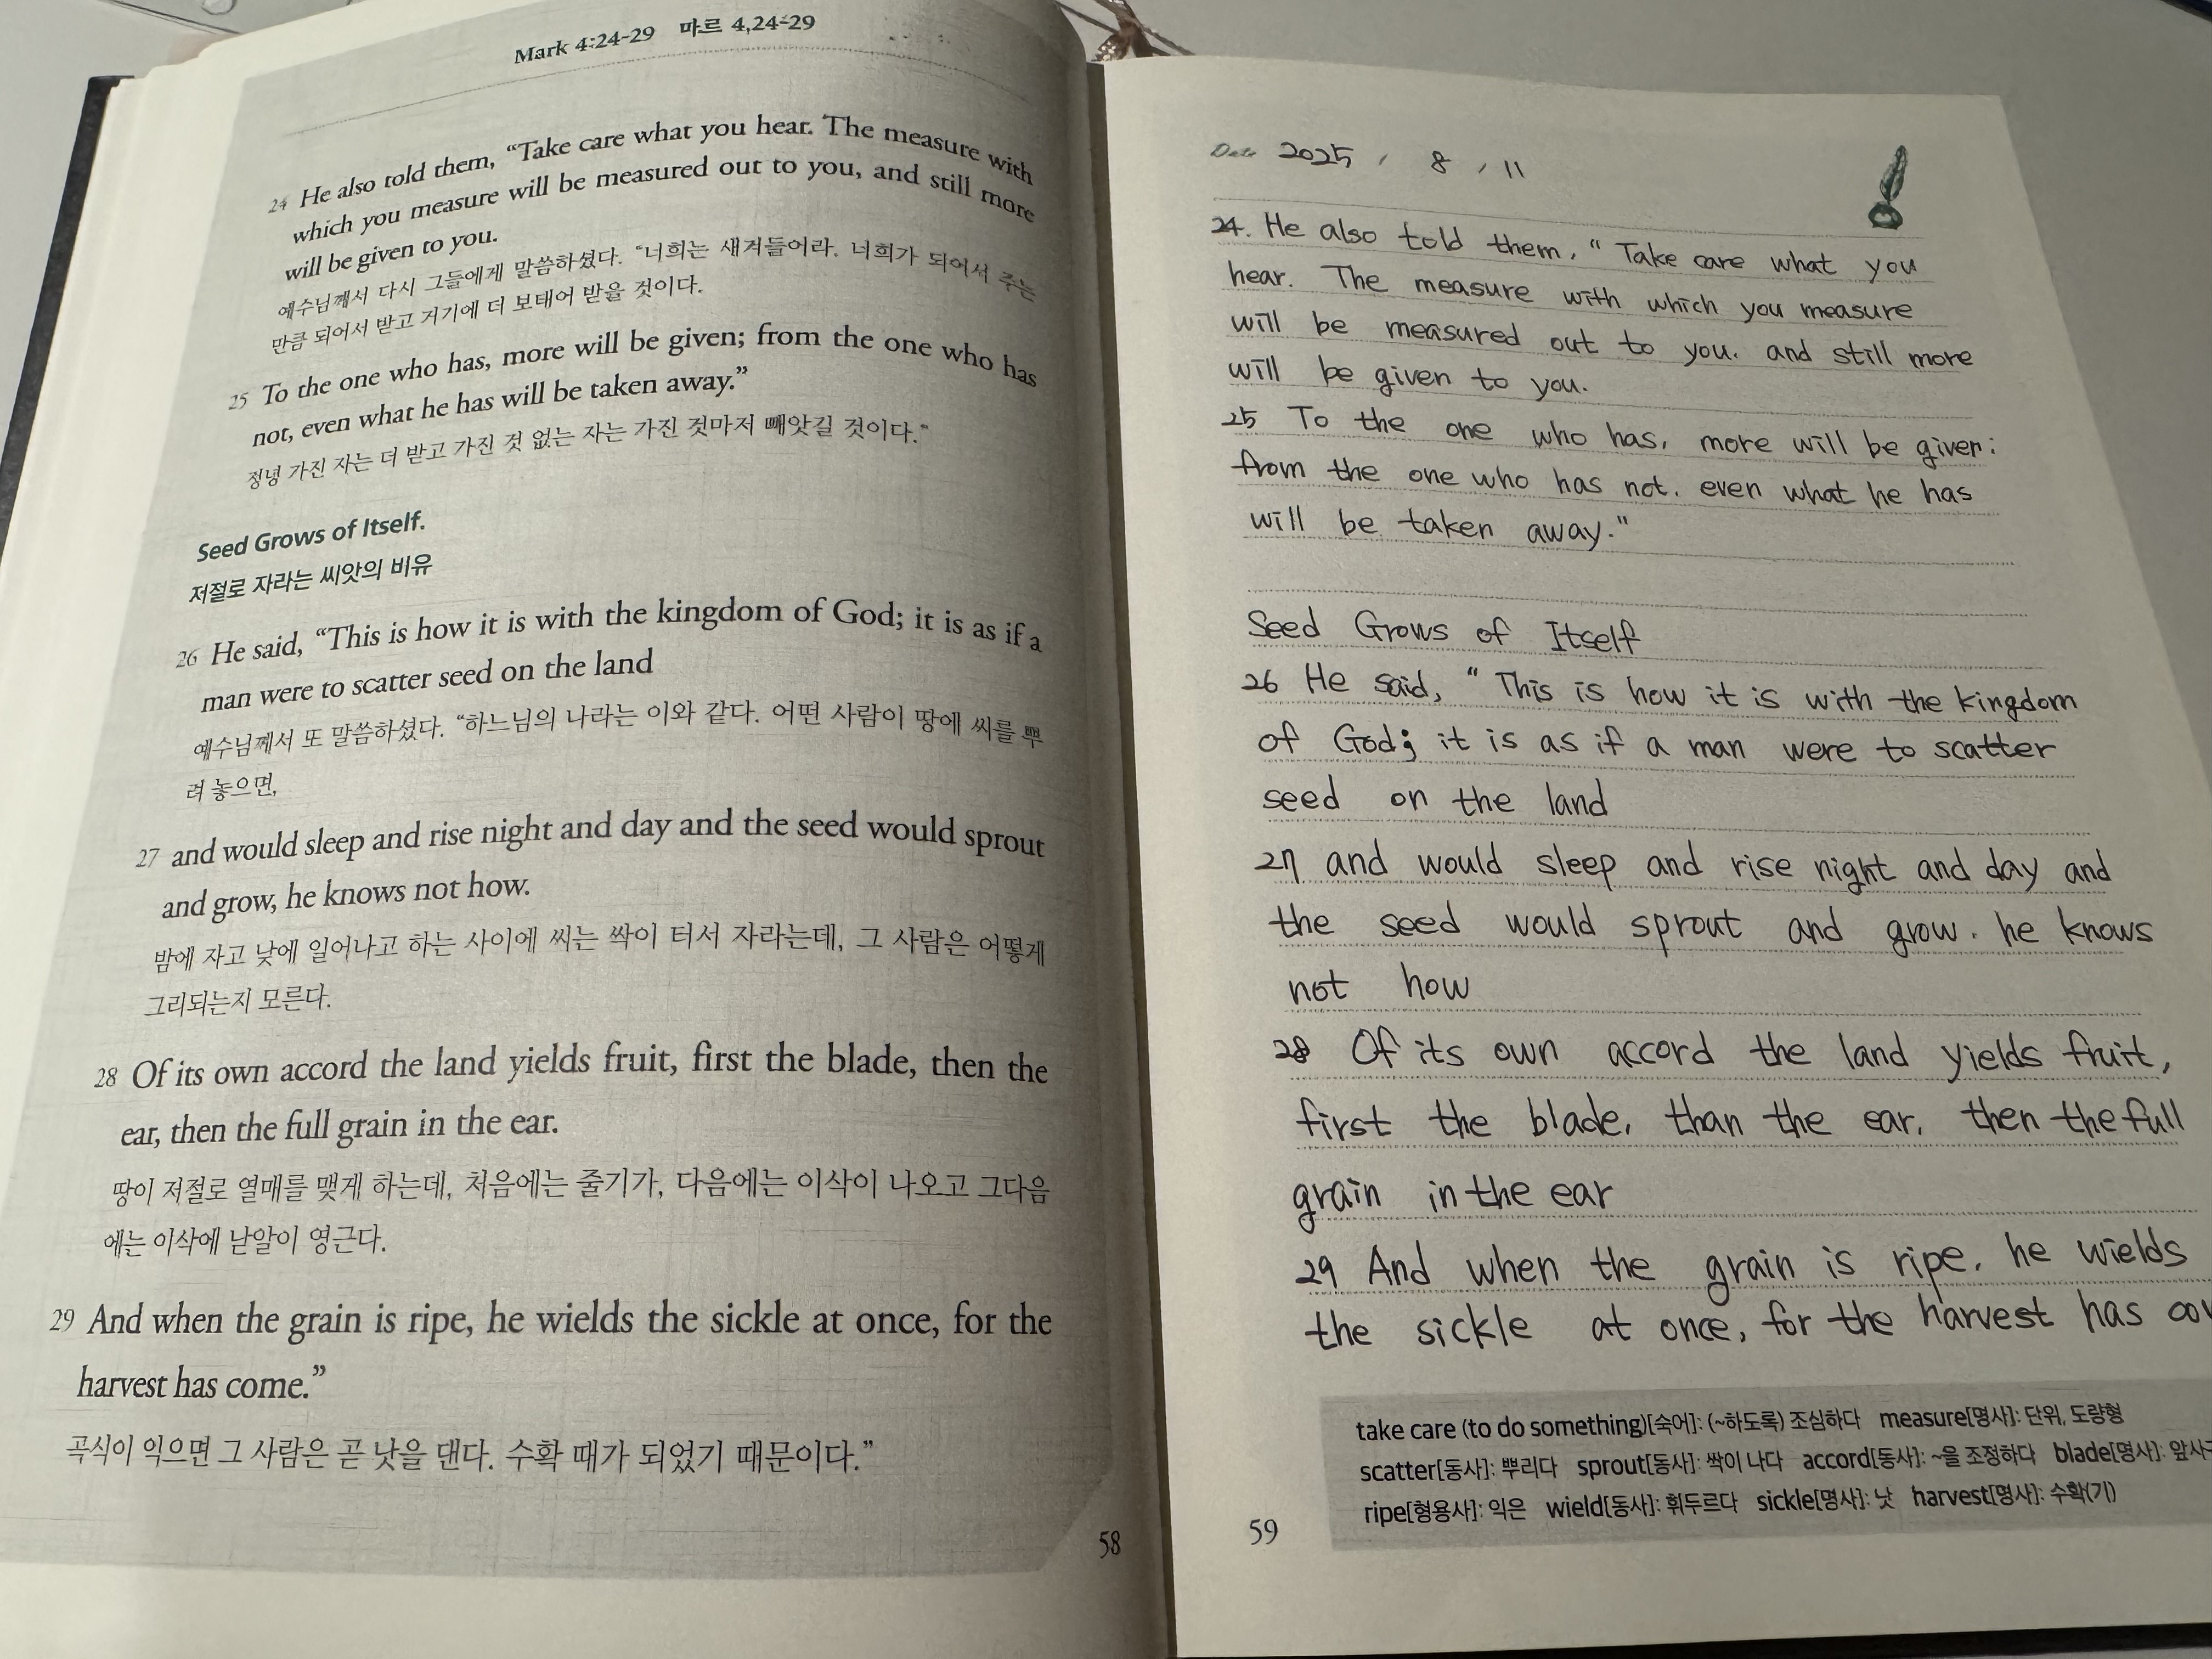 Mark 4:24-29 마르 4,24-29
24 He also told them, “Take care what you hear. The measure with
which you measure will be measured out to you, and still more
will be given to you.
예수님께서 다시 그들에게 말씀하셨다. “너희는 새겨들어라. 너희가 되어서 주는
만큼 되어서 받고 거기에 더 보태어 받을 것이다.
25 To the one who has, more will be given; from the one who has
not, even what he has will be taken away.”
정녕 가진 자는 더 받고 가진 것 없는 자는 가진 것마저 빼앗길 것이다.”
Seed Grows of Itself.
저절로 자라는 씨앗의 비유
26 He said, “This is how it is with the kingdom of God; it is as if a
man were to scatter seed on the land
예수님께서 또 말씀하셨다. “하느님의 나라는 이와 같다. 어떤 사람이 땅에 씨를 뿌
려 놓으면,
27 and would sleep and rise night and day and the seed would sprout
and grow, he knows not how.
밤에 자고 낮에 일어나고 하는 사이에 씨는 싹이 터서 자라는데, 그 사람은 어떻게
그리되는지 모른다.
28 Of its own accord the land yields fruit, first the blade, then the
ear, then the full grain in the ear.
땅이 저절로 열매를 맺게 하는데, 처음에는 줄기가, 다음에는 이삭이 나오고 그다음
에는 이삭에 낟알이 영근다.
29 And when the grain is ripe, he wields the sickle at once, for the
harvest has come.”
곡식이 익으면 그 사람은 곧 낫을 댄다. 수확 때가 되었기 때문이다.”
58
Date 2025 / 8 / 11
24. He also told them, “ Take care what you
hear. The measure with which you measure
will be measured out to you. and still more
will be given to you.
25 To the one who has, more will be given:
from the one who has not. even what he has
will be taken away.”
Seed Grows of Itself
26 He said, “ This is how it is with the kingdom
of God; it is as if a man were to scatter
seed on the land
27 and would sleep and rise night and day and
the seed would sprout and grow. he knows
not how
28 Of its own accord the land yields fruit,
first the blade, than the ear, then the full
grain in the ear
29 And when the grain is ripe, he wields
the sickle at once, for the harvest has
take care (to do something)[숙어]: (~하도록) 조심하다 measure[명사]: 단위, 도량형
scatter[동사]: 뿌리다 sprout[동사]: 싹이 나다 accord[동사]: ~을 조정하다 blade[명사]:
ripe[형용사]: 익은 wield[동사]: 휘두르다 sickle[명사]: 낫 harvest[명사]: 수확(기)
59